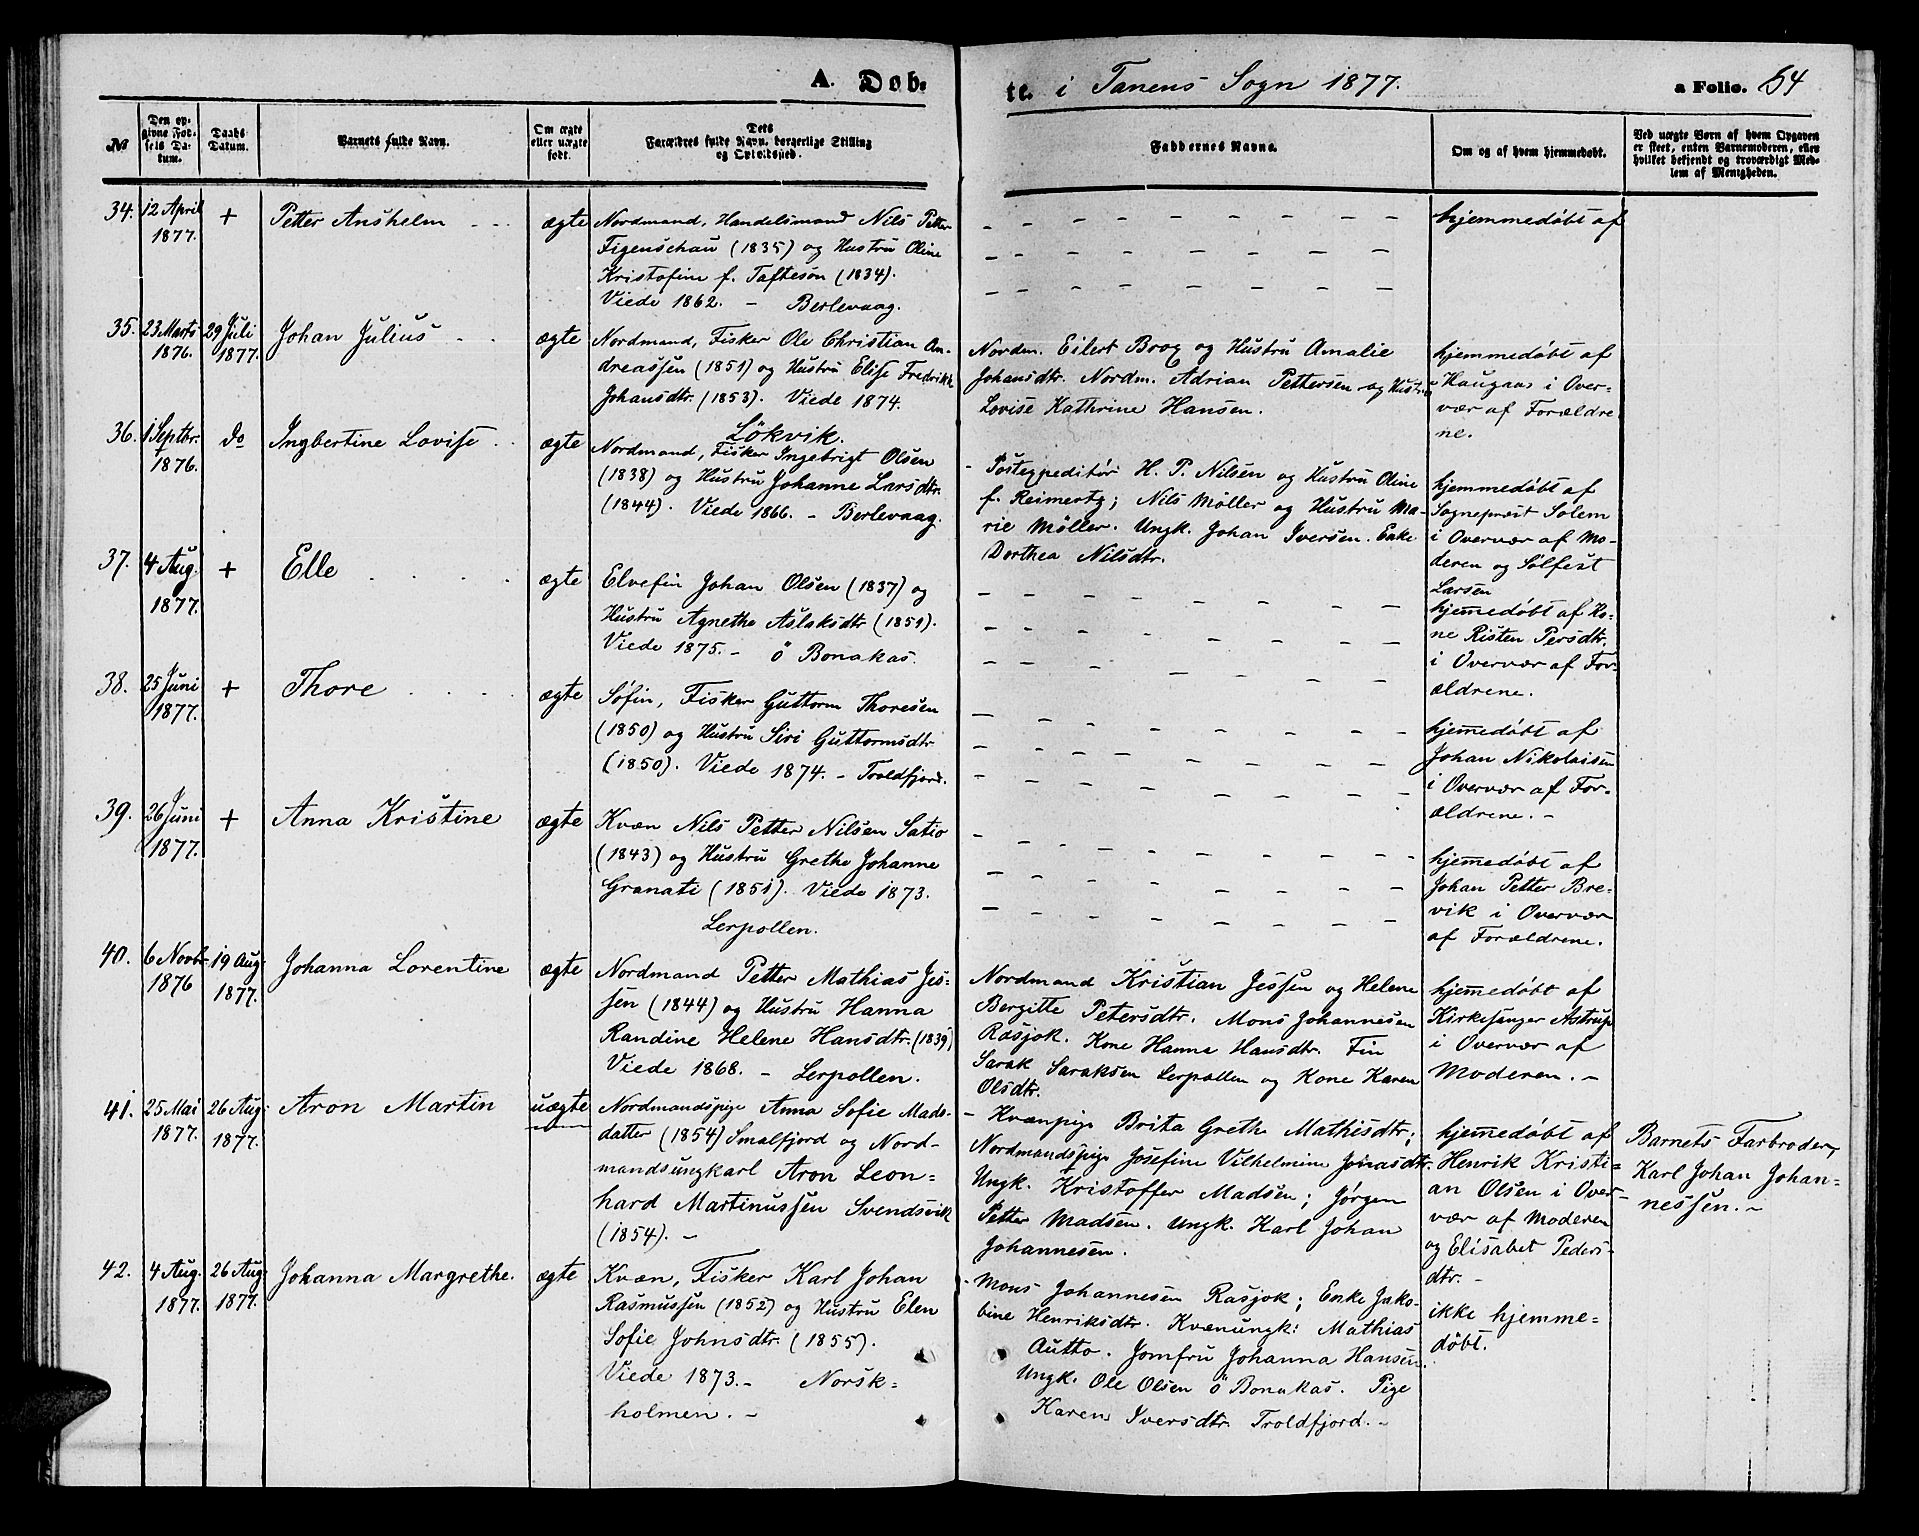 A. Døb.
te. i Tanens Sogn 1877.
a Folio. 54
№
Den opgivne Fødsels Datum.
Daabs Datum.
Barnets fulde Navn.
Om ægte eller uægte født.
Dets Forældres fulde Navn, borgerlige Stilling og Opholdssted.
Faddernes Navne.
Om og af hvem hjemmedøbt.
Ved uægte Børn af hvem Opgaven er skeet, enten Barnemoderen, eller hvilket bekjendt og troværdigt Medlem af Menigheden.
34. 12 April 1877. + Petter Anshelm ægte
Nordmand, Handelsmand Nils Petter
Figenschau (1835) og Hustru Oline
Kristofine f. Taftesøn (1834).
Viede 1862. – Berlevaag.
hjemmedøbt af
35. 23 Marts 1876. 29 Juli 1877. Johan Julius ægte
Nordmand, Fisker Ole Christian An-
dreassen (1851) og Hustru Elise Fredrikke
Johansdtr. (1853). Viede 1874.
Lökvik.
Nordm. Eilert Brox og Hustru Amalie
Johansdtr. Nordm. Adrian Pettersen og Hustru
Lovise Kathrine Hansen.
hjemmedøbt af
Haugaas i Over-
vær af Forældre
ne.
36. 1 Septbr. 1876. do Ingbertine Lovise ægte
Nordmand, Fisker Ingebrigt Olsen
(1838) og Hustru Johanne Larsdtr.
(1844). Viede 1866. – Berlevaag.
- Postexpeditör H. P. Nilsen og Hustru Oline
f. Reimertz; Nils Möller og Hustru Ma-
rie Möller. Ungk. Johan Iversen. Enke
Dorthea Nilsdtr.
hjemmedøbt af
Sogneprest Solem
i Overvær af Mo-
deren og Sølfest
Larsen
37. 4 Aug. 1877. + Elle ægte
Elvefin Johan Olsen (1837) og
Hustru Agnethe Aslaksdtr (1851).
Viede 1875. – ö Bonakas.
hjemmedøbt af Ko-
ne Risten Persdtr.
i Overvær af For-
ældrene.
38. 25 Juni 1877. + Thore ægte
Søfin, Fisker Guttorm Thoresen
(1850) og Hustru Siri Guttormsdtr
(1850). Viede 1874. – Troldfjord.
hjemmedøbt af
Johan Nikolaisen
i Overvær af For-
ældrene. –
39. 26 Juni 1877. + Anna Kristine ægte
Kvæn Nils Petter Nilsen Satio
(1843) og Hustru Grethe Johanne
Granati (1851). Viede 1873.
Lerpollen.
hjemmedøbt af
Johan Petter Bre-
vik i Overvær
af Forældrene.
40. 6 Novbr 1876 19 Aug. 1877. Johanna Lorentine ægte
Nordmand Petter Mathias Jes-
sen (1844) og Hustru Hanna
Randine Helene Hansdtr. (1839)
Viede 1868. – Lerpollen.
Nordmand Kristian Jessen og Helene
Bergitte Petersdtr. Mons Johannesen
Rasjok. Kone Hanna Hansdtr. Fin
Sarak Saraksen Lerpollen og Kone Karen
Olsdtr.
hjemmedøbt af
Kirkesanger Astrup
i Overvær af
Moderen. –
41. 25 Mai 1877. 26 Aug. 1877. Aron Martin uægte
Nordmandspige Anna Sofie Mads-
datter (1854) Smalfjord og Nord-
mandsungkarl Aron Leon-
hard Martinussen Svendsvik
(1854). –
- Kvænpige Brita Grethe Mathisdtr;
Nordmandspige Josefine Vilhelmine Jonasdtr.
Ungk. Kristoffer Madsen; Jørgen
Petter Madsen. Ungk. Karl Johan
Johannesen.
hjemmedøbt af
Henrik Kristi-
an Olsen i Over-
vær af Moderen
og Elisabet Peders-
dtr. –
Barnets Farbroder,
Karl Johan Johan-
nessen. –
42. 4 Aug. 1877. 26 Aug. 1877. Johanna Margrethe. ægte
Kvæn, Fisker Karl Johan
Rasmussen (1852) og Hustru Elen
Sofie Johnsdtr. (1855).
Viede 1873. – Norsk-
holmen. –
- Mons Johannesen Rasjok; Enke Jako-
bine Henriksdtr. Kvænungk: Mathias
Autto. Jomfru Johanna Hansen.
Ungk. Ole Olsen ö Bonakas. Pige
Karen Iversdtr. Troldfjord. –
ikke hjemme-
døbt.